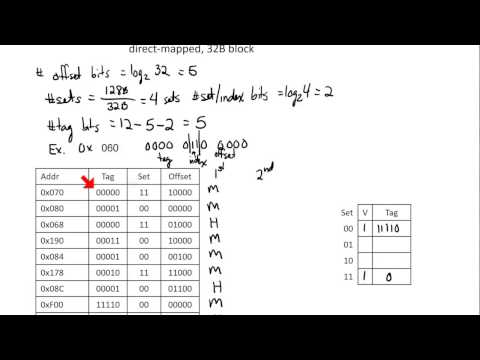 direct-mapped, 32B block
# offset bits = log₂ 32 = 5
#sets = 128B / 32B = 4 sets #set/index bits = log₂4 = 2
#tag bits = 12 - 5 - 2 = 5
Ex. 0x 060 0000 0110 0000
tag index offset
1st 2nd
Addr Tag Set Offset
0x070 00000 11 10000 M
0x080 00001 00 00000 M
0x068 00000 11 01000 H
0x190 00011 00 10000 M
0x084 00001 00 00100 M
0x178 00010 11 11000 M
0x08C 00001 00 01100 H
0xF00 11110 00 00000 M
Set V Tag
00 1 11110
01
10
11 1 0